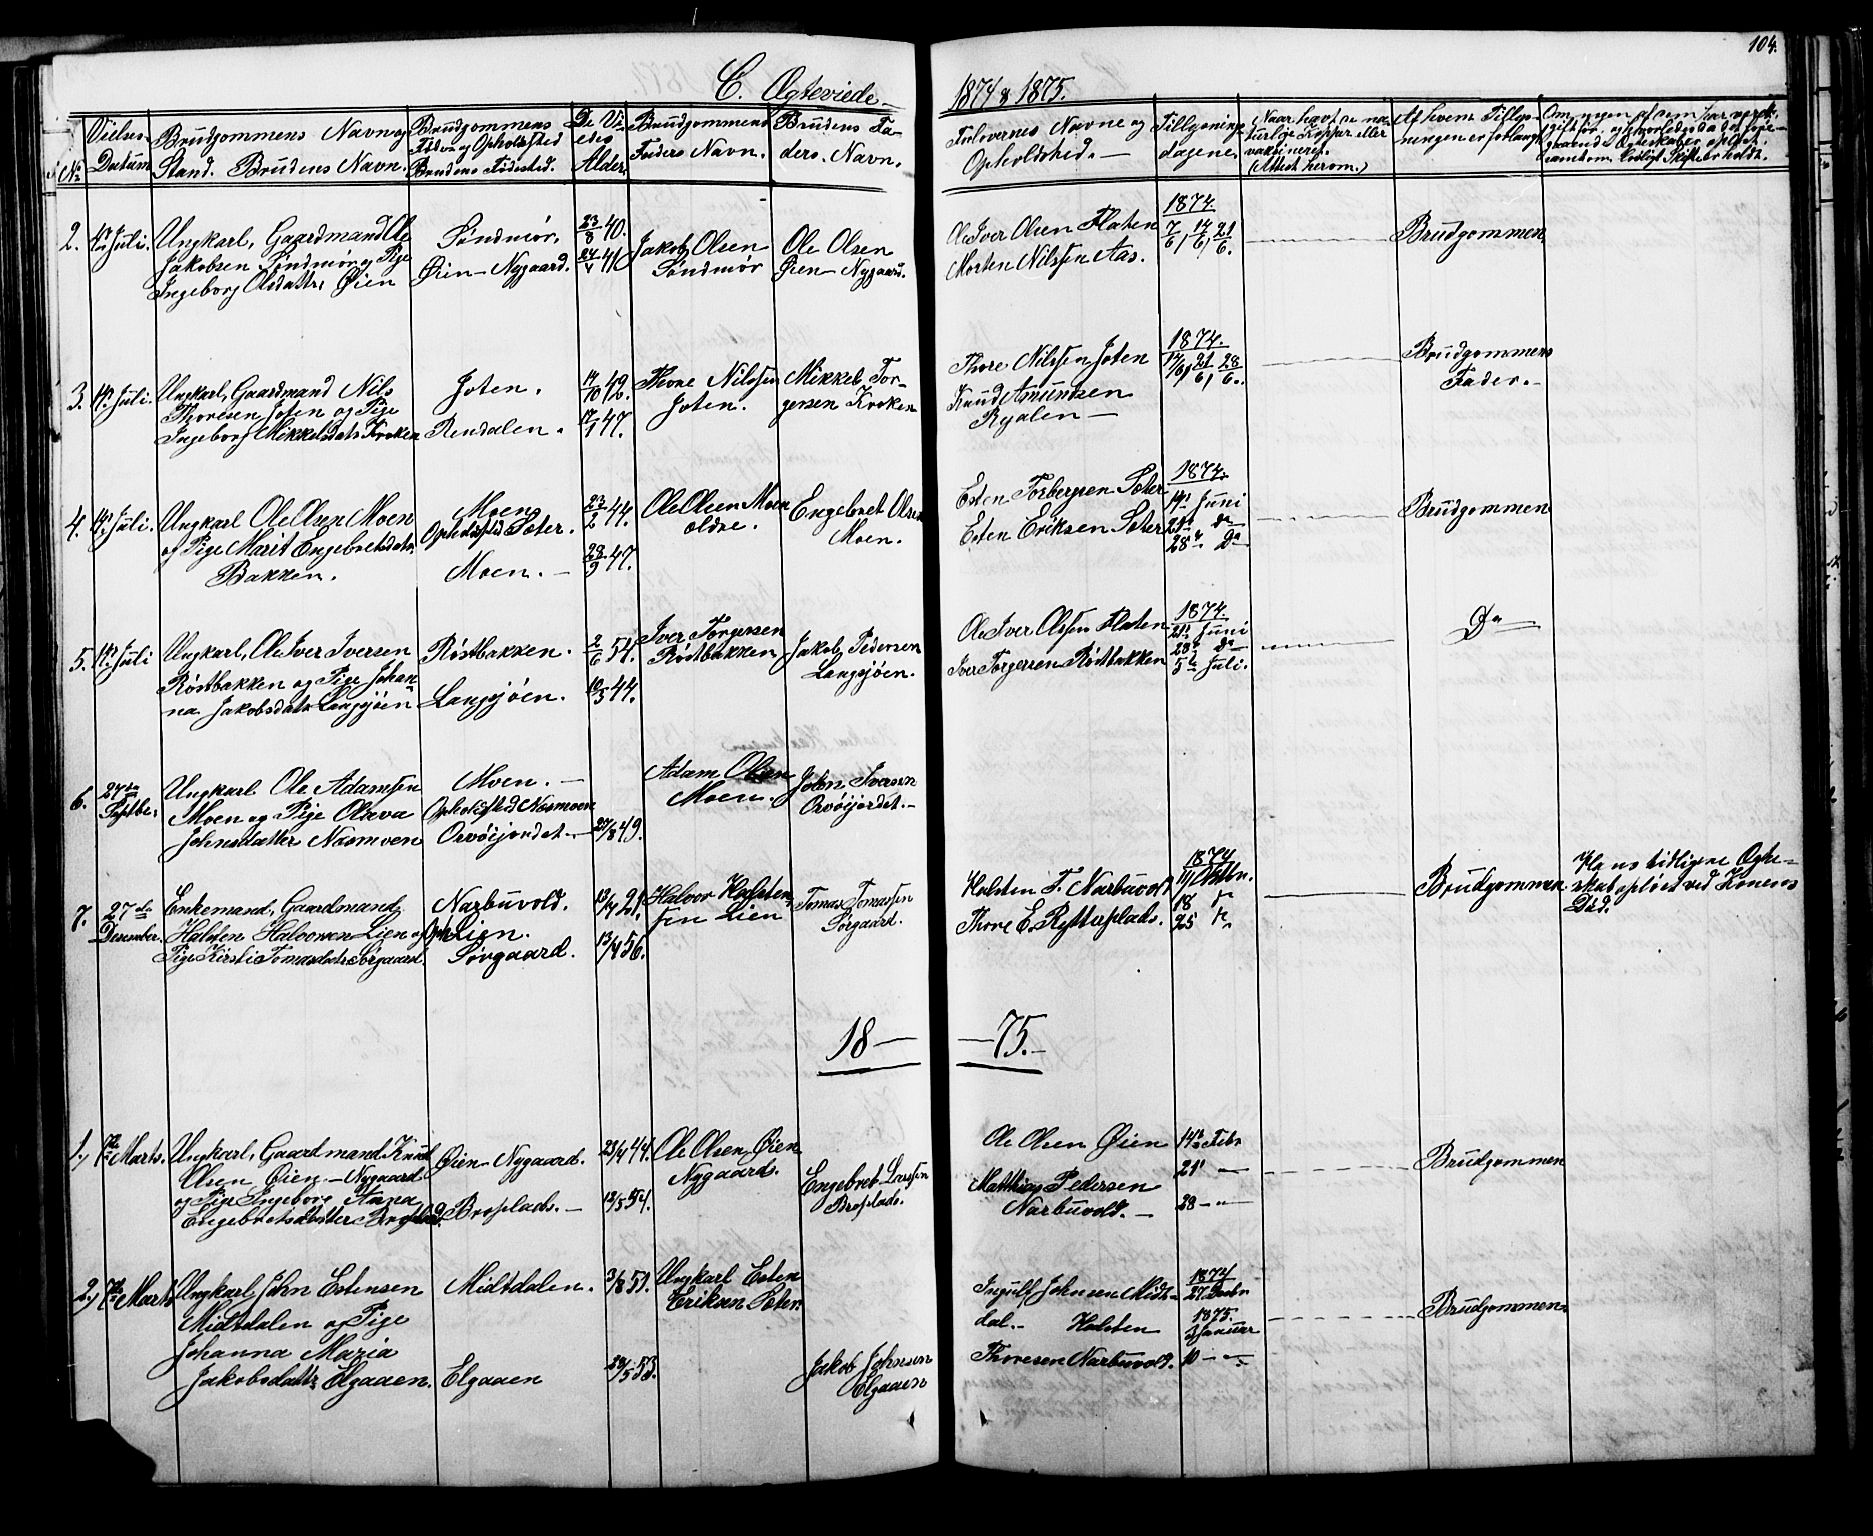 104.
C. Ægteviede
1874 & 1875.
No
Vielses Datum
Brudgommens Navn og Stand. Brudens Navn.
Brudgommens Fødse og Opholdssted Brudens Fødested.
De Viedes Alder
Brudgommens Faders Navn.
Brudens Faders Navn.
Forlovernes Navne og Opholdsted.
Tillysnings dagene.
Naar havt de naturlige Kopper eller vaksineret. (Attest herom.)
Af hvem Tillysningen er forlangt
2.
Juli.
Ungkarl, Gaardmand Ole
Jakobsen Søndmør og Pige
Ingeborg Olsdattr Øien
Søndmør.
Øien - Nygaard.
23/8 40.
41
Jakob Olsen
Søndmør
Ole Olsen
Øien - Nygaard.
Ole Iver Olsen Floten
Morten Nilsſen Aas.
1874.
7/6, 14/6, 21/6.
Brudgommen
3.
Juli.
Ungkarl, Gaardmand Nils
Thoresen Joten og Pige
Ingeborg Mikkelsdatr Kroken
Joten.
Rendalen.
14/10 42.
17/1 47.
Thore Nilssen
Joten.
Mikkel Tor-
gersen Kroken
Thore Nilsſen Joten
Knud Amundsen
Ryalen —
1874.
14/6, 21/6, 28/6.
Brudgommens
Fader.
4.
Juli.
Ungkarl Ole Olsen Moen
og Pige Marit Engebretsdatr
Bakken.
Moen
Opholdssted Soter.
Moen. —
23/2 44.
28/9 47.
Ole Olsen Moen
oldre.
Engebret Olsen
Moen.
Esten Torbergsen Soter
Esten Eriksen Soter
1874.
14de Juni
21de do
28de Do
Brudgommen
5.
Juli
Ungkarl, Ole Iver Iversen
Røstbakken og Pige Johan-
na Jakobsdatr Langsjøen
Røstbakken.
Langsjøen.
2/6 54.
10/3 44.
Iver Torgersen
Røstbakken
Jakob Pedersen
Langsjøen.
Ole Iver Olsſen Floten
Iver Torgersen Røstbakken
1874.
21de Juni
28de Do
5te Juli.
Do
6.
27de
Septbr.
Ungkarl Ole Adamsſen
Moen og Pige Olava
Johnsdatter Nosmoen
Moen. —
Opholdssted Nosmoen
Orvøisjordet. —
27/8 49.
Adam Olsen
Moen.
John Iversen
Orvøijordet. —
7.
27de
Desember.
Enkemand, Gaardmand
Halsten Halvorsen Lien og
Pige Kirsti Tomasdatr Sørgaard.
Narbuvold.
Oph. Lien.
Sørgaard.
13/4 21.
13/4 56.
Halvor Halsten-
sen Lien
Tomas Tomasſen
Sørgaard.
Halsten T. Narbuvold
Thore E. Rytterplads.
1874
11 Oktbr.
18
25
Brudgommen
Hans tidligere Ægte-
skab opløst ved Konens
Død.
18—
—75.—
1.
7de Marts.
Ungkarl, Gaardmand Knud
Olsen Øien - Nygaard
og Pige Ingeborg Anna
Engebretsdatter Broplads.
Øien - Nygaard.
Broplads. —
23/4 44.
12/5 54.
Ole Olsen Øien
Nygaard.
Engebret Larsſen
Broplads.
Ole Olsen Øien
Matthias Pedersen
Narbuvold. —
14de Febr
21 —
28 — " —
Brudgommen
2.
7de Marts
Ungkarl John Estensen
Midtdalen og Pige
Johanna Maria
Jakobsdattr Elgaaen.
Midtdalen.
Elgaaen
3/8 51.
28/5 53.
Ungkarl Esten
Eriksen Soter
Jakob Johnsen
Elgaaen
Ingulf Johnsen Midt-
dal. — Halsten
Thoresen Narbuvold.
1874
27 Desbr
1875.
3 Januar
10 — " —
Brudgommen